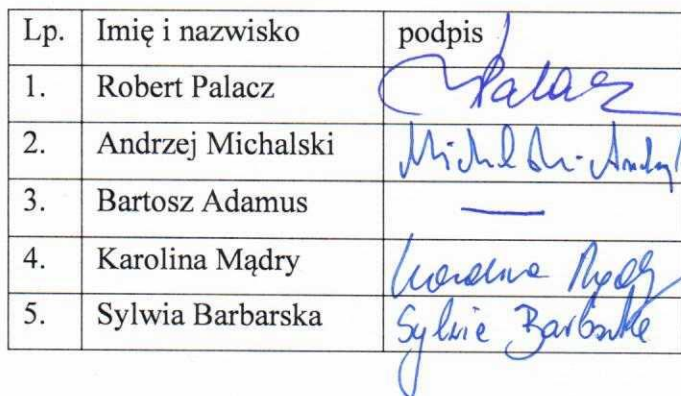 Lp. Imię i nazwisko podpis
1. Robert Palacz Palacz
2. Andrzej Michalski Michalski Andrzej
3. Bartosz Adamus —
4. Karolina Mądry Karolina Mądry
5. Sylwia Barbarska Sylwia Barbarska